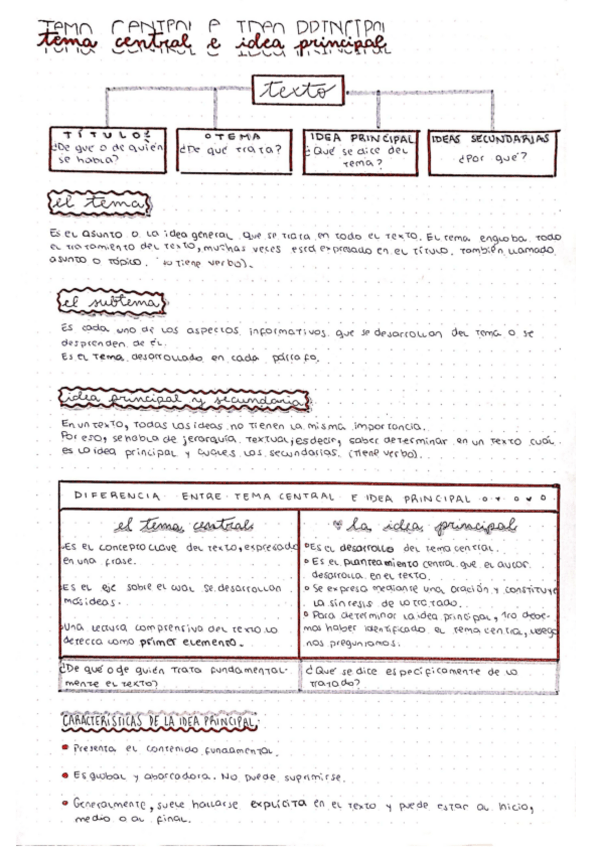 TEMA CENTRAL E IDEA PRINCIPAL
tema central e idea principal
texto
TÍTULO
¿De que o de quién
se habla?
TEMA
¿De qué trata?
IDEA PRINCIPAL
¿Qué se dice del
tema?
IDEAS SECUNDARIAS
¿Por qué?
el tema
Es el asunto o la idea general que se trata en todo el texto. El tema engloba todo
el tratamiento del texto, muchas veces está expresado en el título. También llamado
asunto o tópico. tiene verbo).
el subtema
Es cada uno de los aspectos informativos que se desarrollan del tema o se
desprenden de él.
Es el tema desarrollado en cada párrafo.
idea principal y secundaria
En un texto, todas las ideas no tienen la misma importancia.
Por eso, se habla de jerarquía textual; es decir, saber determinar en un texto cuál
es la idea principal y cuales las secundarias. (Tiene verbo).
DIFERENCIA ENTRE TEMA CENTRAL E IDEA PRINCIPAL
el tema central
Es el concepto clave del texto, expresado
en una frase.
Es el eje sobre el cual se desarrollan
más ideas.
Una lectura comprensiva del texto lo
detecta como primer elemento.
¿De qué o de quién trata fundamental-
mente el texto?
la idea principal
Es el desarrollo del tema central.
Es el planteamiento central que el autor
desarrolla en el texto.
Se expresa mediante una oración y constituye
la síntesis de lo tratado.
Para determinar la idea principal, debe-
mos haber identificado el tema central, luego
nos preguntamos:
¿Qué se dice específicamente de lo
tratado?
CARACTERÍSTICAS DE LA IDEA PRINCIPAL:
Presenta el contenido fundamental.
Es global y abarcadora. No puede suprimirse.
Generalmente, suele hallarse explícita en el texto y puede estar al inicio,
medio o al final.